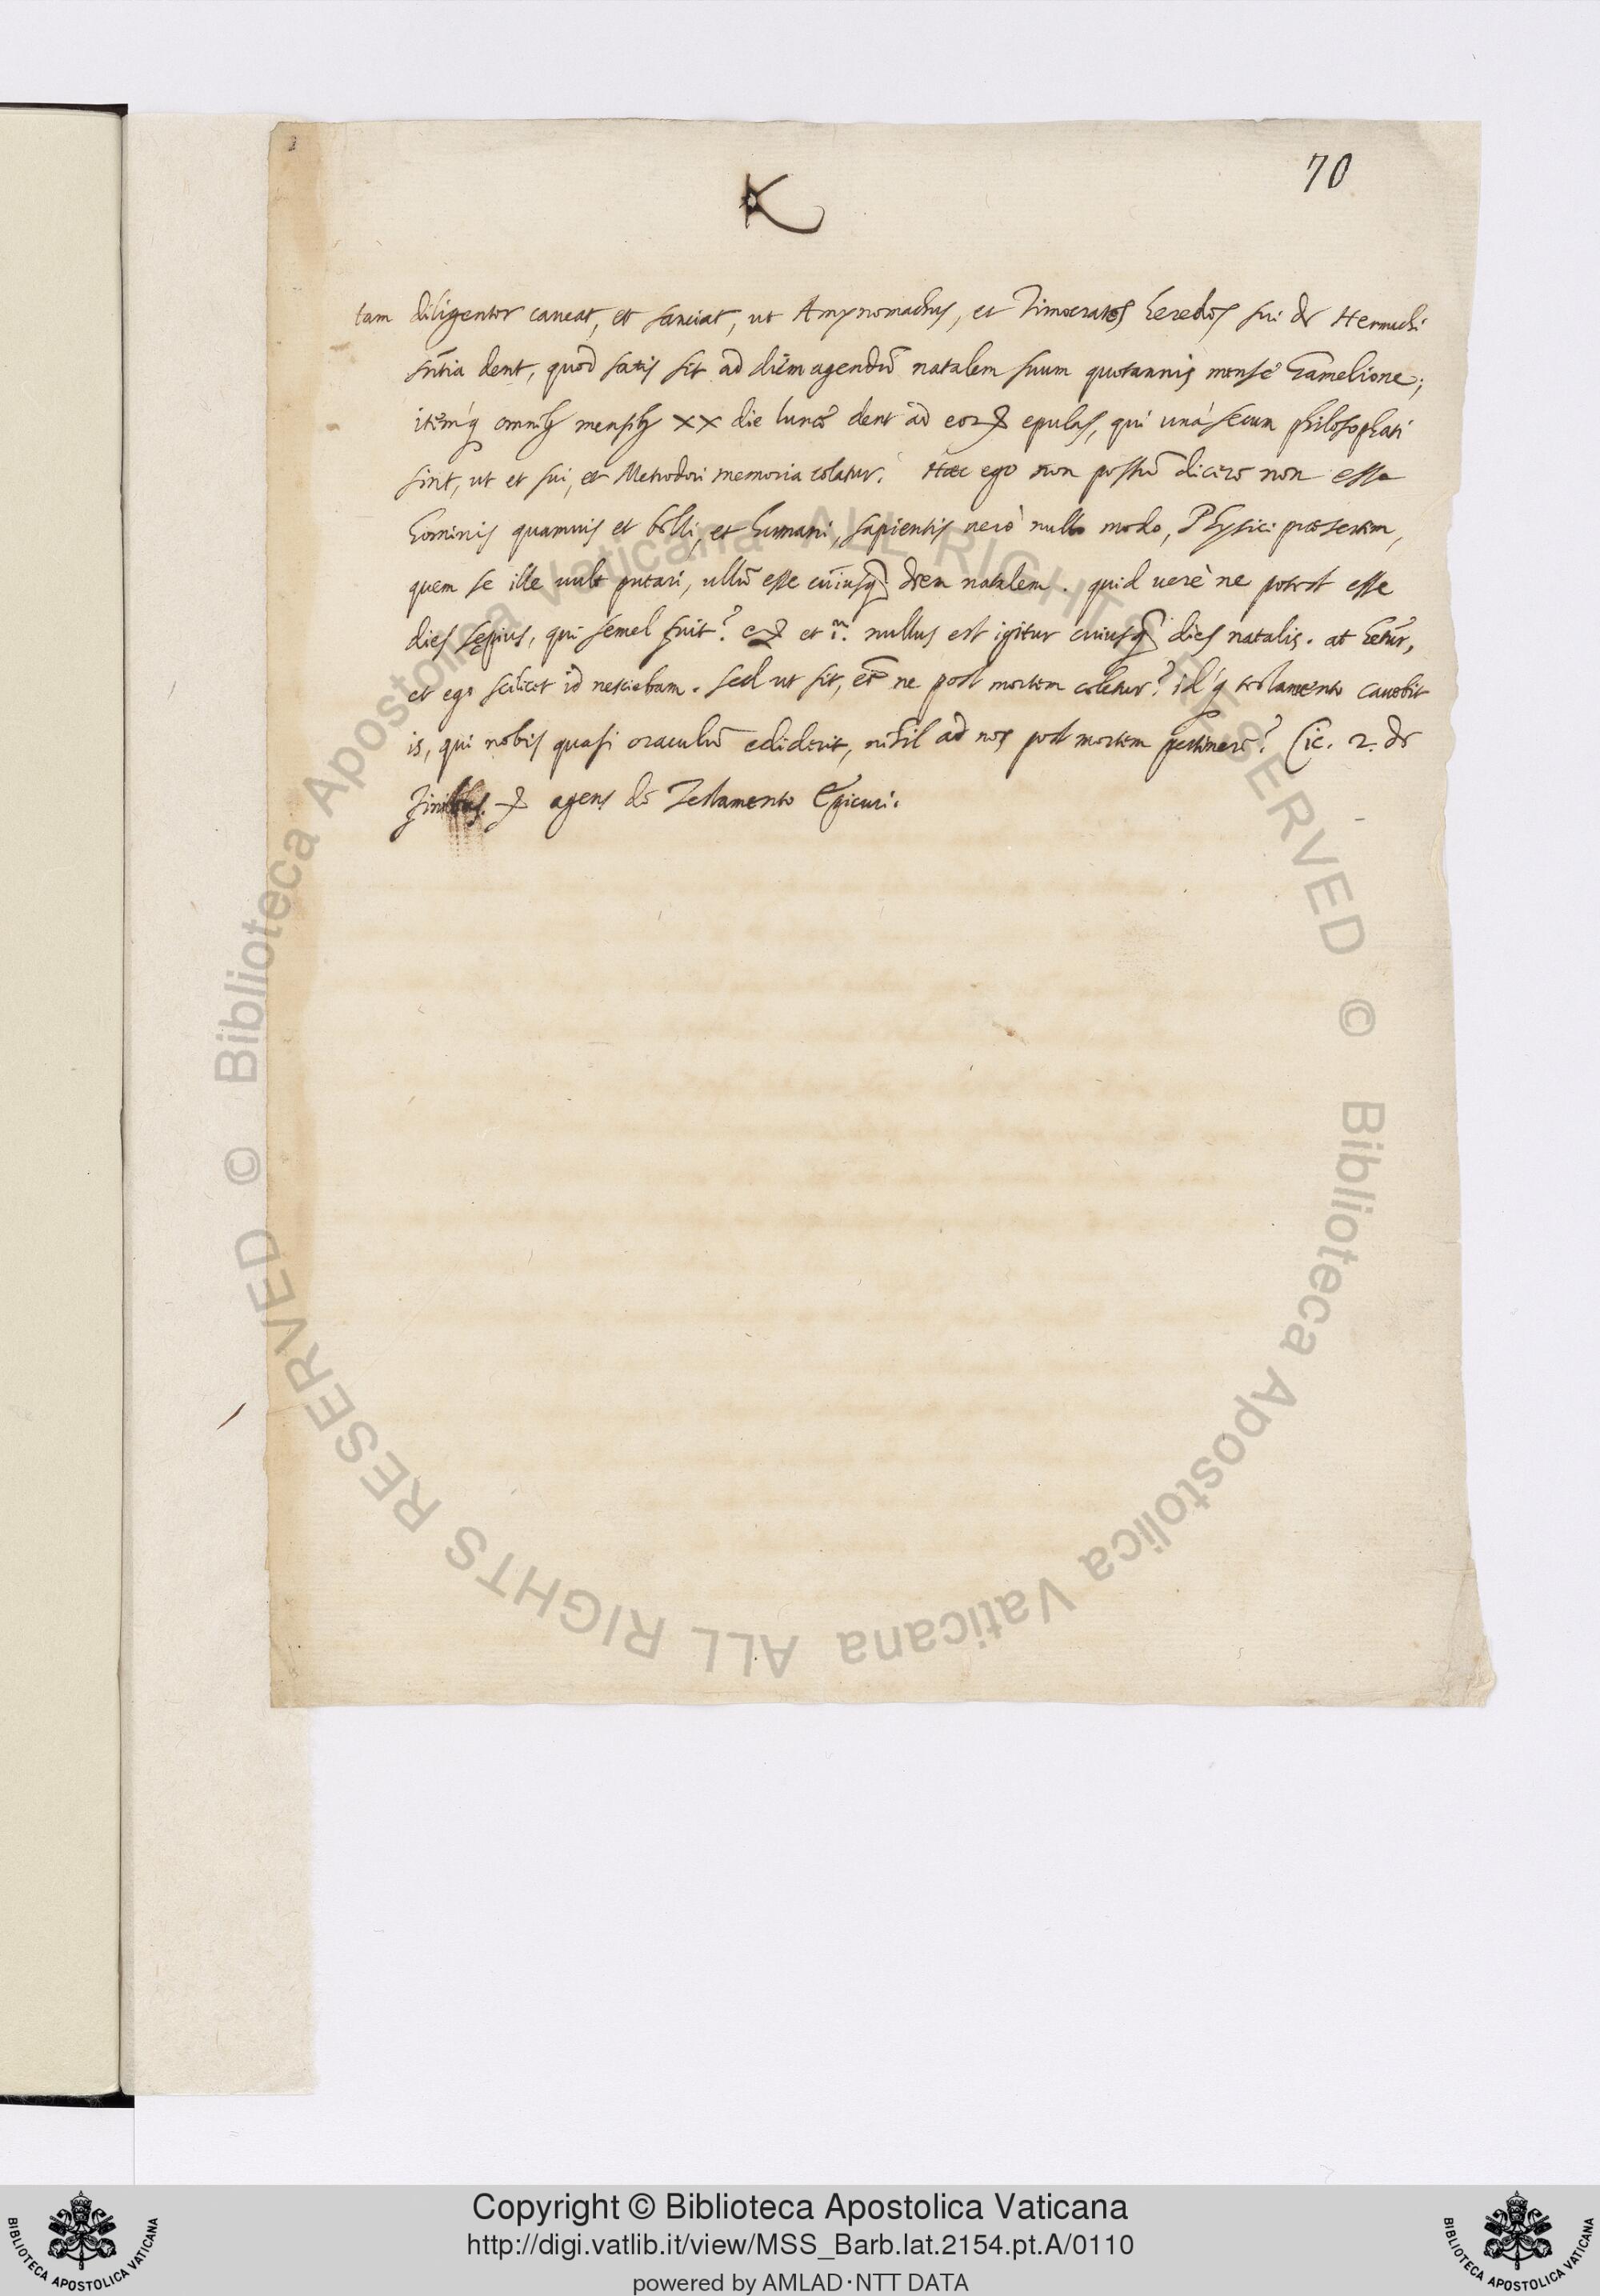 70
K
tam diligenter caueat, et sanciat, ut Amynomachus, et Timocrates heredes sui de Hermachi
sñtia dent, quod satis sit ad diem agendũ natalem suum quotannis mense Gamelione;
itemq́ omnibꝫ mensibꝫ XX die lunæ dent ad eoꝝ epulas, qui unà secum philosophati
sint, ut et sui, et Metrodori memoria colatur. Hæc ego non possũ dicere non esse
hominis quamuis et belli, et humani, sapientis uerò nullo modo, Physici præsertim,
quem se ille uult putari, ullũ esse cuiusq diem natalem. quid uerè ne potest esse
dies sępius, qui semel fuit? et nullus est igitur cuiusq dies natalis. at hetur,
et ego scilicet id nesciebam. sed ut sit, et ne post mortem coletur? idq́ testamento cauebit
is, qui nobis quasi oraculũ ediderit, nihil ad nos post mortem pertinere? Cic. 2. de
Finibus. agens de Testamento Epicuri.
© Biblioteca Apostolica Vaticana ALL RIGHTS RESERVED
© Biblioteca Apostolica Vaticana ALL RIGHTS RESERVED
Copyright © Biblioteca Apostolica Vaticana
http://digi.vatlib.it/view/MSS_Barb.lat.2154.pt.A/0110
powered by AMLAD·NTT DATA
BIBLIOTECA APOSTOLICA VATICANA
BIBLIOTECA APOSTOLICA VATICANA